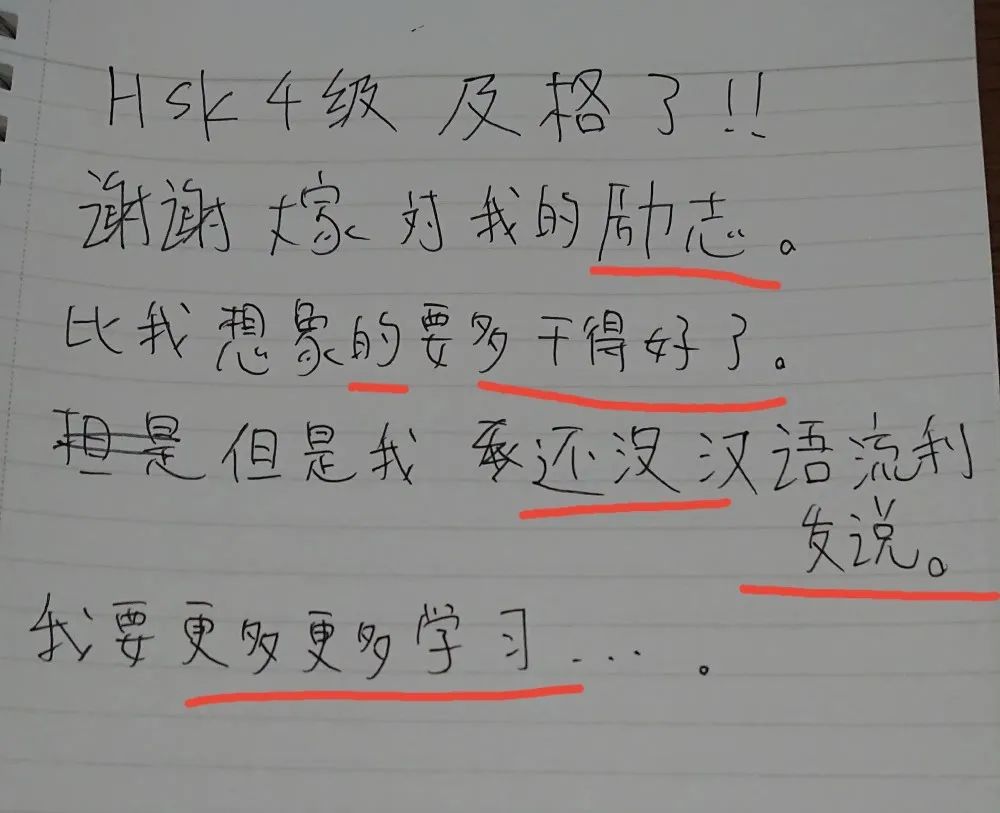 Hsk 4级 及格了!!
谢谢 大家 对 我的 励志。
比我 想象的要多干得好了。
但是 但是我 还没汉语流利
发说。
我要更多更多学习....。